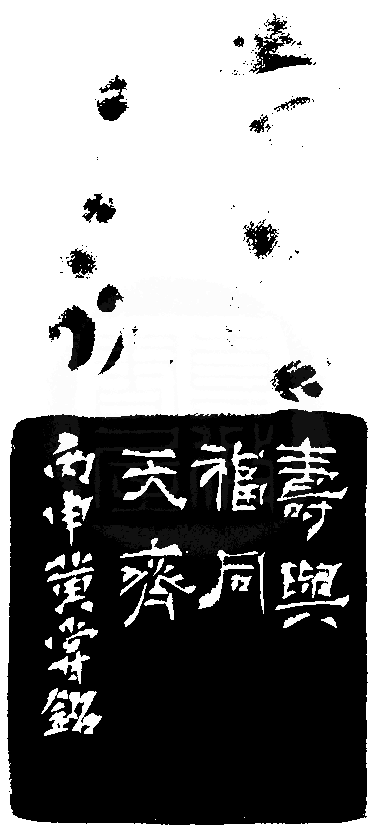 壽與
福同
天齊
丙申黃嘗銘